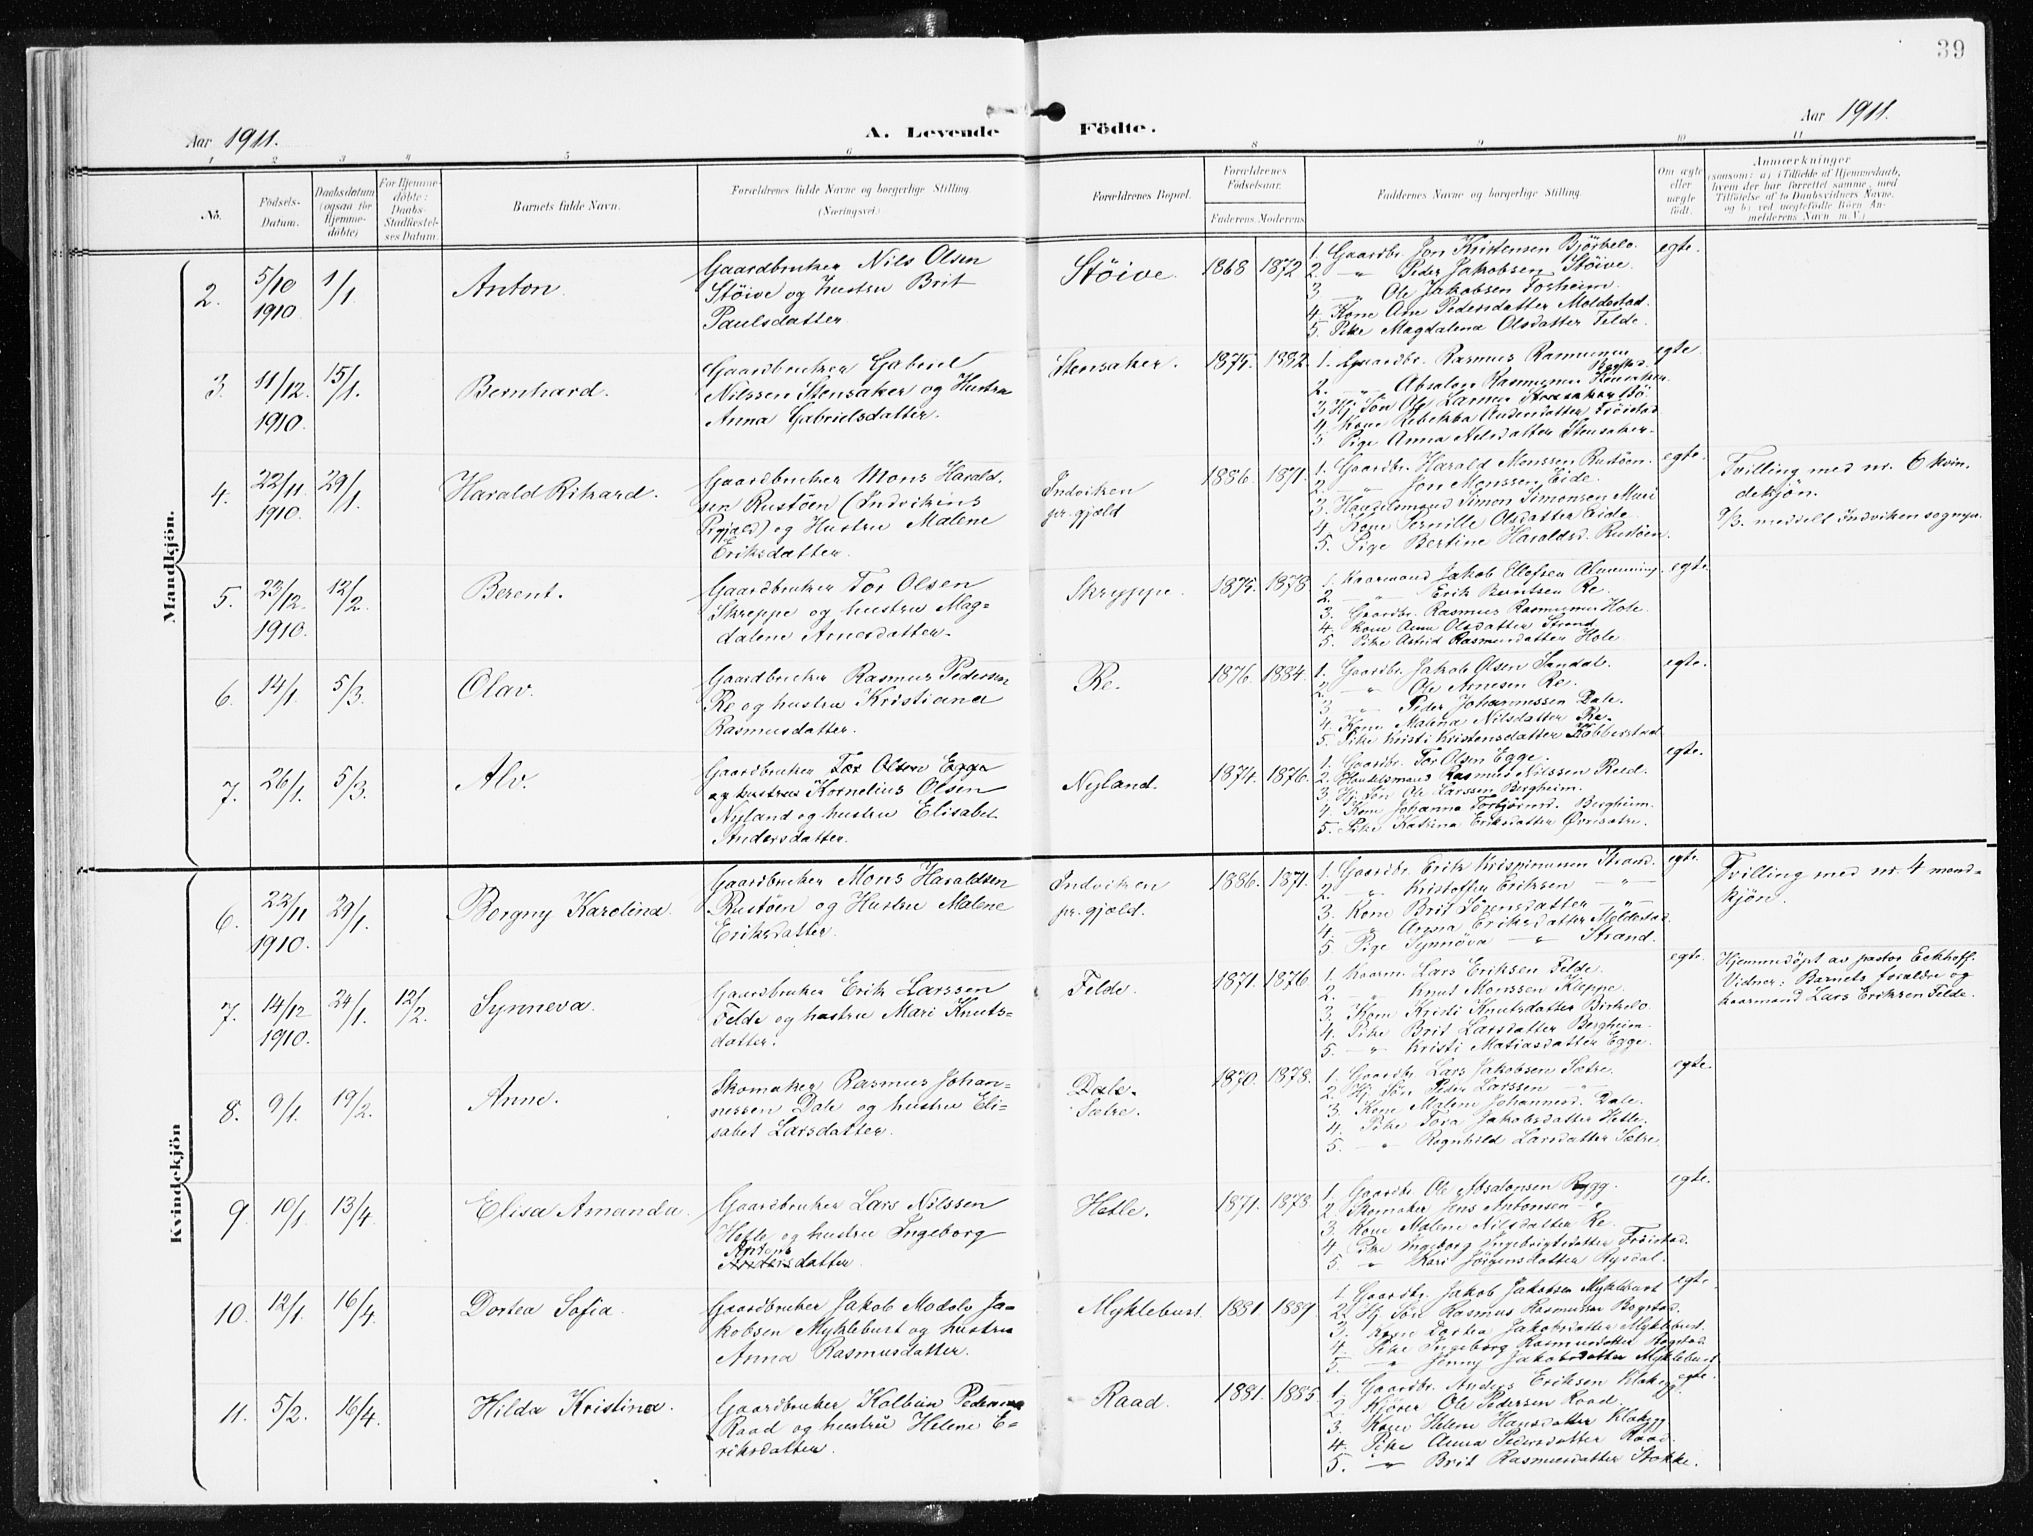 39
Aar 1911.
A. Levende Födte.
Aar 1911.
1 2 3 4 5 6 8 9 10 11
No.
Födsels-
Datum.
Daabsdatum
(ogsaa for
Hjemme-
döbte)
For Hjemme-
döbte:
Daabs-
Stadfæstel-
ses Datum.
Barnets fulde Navn.
Forældrenes fulde Navne og borgerlige Stilling.
(Næringsvei)
Forældrenes Bopæl.
Forældrenes
Födselsaar.
Faderens. Moderens.
Faddernes Navne og borgerlige Stilling.
Om ægte
eller
uægte
födt.
Anmærkninger
(saasom: a) i Tilfælde af Hjemmedaab,
hvem der har forrettet samme, med
Tilföielse af to Daabsvidners Navne,
og b) ved uægtefödte Börn An-
melderens Navn m. V.)
Mandkjön.
2. 5/10 1910 1/1 Anton.
Gaardbruker Nils Olsen
Støive og hustru Brit
Paulsdatter
Støive. 1868 1872
1. Gaardbr. Jon Kristensen Bjørkelo.
2. " Peder Jakobsen Støive.
3. " Ole Jakobsen Forheim.
4. Kone Ane Pedersdatter Moldestad.
5. Pike Magdalena Olsdatter Felde.
egte.
3. 11/12 1910. 15/1. Bernhard.
Gaardbruker Gabriel
Nilssen Stensaker og Hustru
Anna Gabrielsdatter.
Stensaker. 1875. 1882.
1. Gaardbr. Rasmus Rasmussen
2. " Absalon Rasmussen Stensaker.
3. Hj. Søn Ole Larsen
4. Kone Rebekka Andersdatter Frøistad
5. Pige Anna Nilsdatter Stensaker.
egte.
4. 22/11 1910. 29/1. Harald Rikard.
Gaardbruker Mons Harald-
sen Rustøen (Indvikens
Prgjæld) og Hustru Malene
Eriksdatter.
Indviken
pr. gjæld
1886. 1871.
1. Gaardbr. Harald Monssen Rustøen.
2. " Jon Monssen Eide.
3. Handelsmand Simon Simonsen Muri
4. Kone Pernille Olsdatter Eide.
5. Pige Bertine Haraldsd. Rustøen.
egte.
Tvilling med nr. 6 kvin-
dekjøn.
9/3. meddelt Indviken sognepr.
5. 23/12 1910. 12/2. Berent.
Gaardbruker Tor Olsen
Skreppe og hustru Mag-
dalene Arnesdatter.
Skryppe. 1875. 1878
1. Kaarmand Jakob Ellefsen Almenning.
2. " Erik Berntsen Re.
3. Gaardbr. Rasmus Rasmussen Hole.
4. Kone Anne Olsdatter Strand
5. Pike Astrid Rasmusdatter Hole.
egte.
6. 14/1. 5/3. Olav.
Gaardbruker Rasmus Pedersen
Re og hustru Kristiana
Rasmusdatter.
Re. 1876. 1884.
1. Gaardbr. Jakob Olsen Sandal.
2. " Ole Arnesen Re.
3. " Peder Johannessen Dale.
4. Kone Malena Nilsdatter Re.
5. Pike Kristi Kristensdatter
egte.
7. 26/1. 5/3. Alv.
Gaardbruker Tor Olsen Egge
og hustru Kornelius Olsen
Nyland og hustru Elisabet
Andersdatter.
Nyland. 1874. 1876.
1. Gaardbr. Tor Olsen Egge.
2. Handelsmand Rasmus Nilssen Reed.
3. Hj. søn Ole Larssen Bergheim.
4. Kone Johanne Torbjørnsd. Bergheim.
5. Pike Katrina Eriksdatter Øvresætre.
egte.
Kvindekjön
6. 22/11 1910. 29/1. Borgny Karolina.
Gaardbruker Mons Haraldsen
Rustøen og Hustru Malene
Eriksdatter.
Indviken
pr. gjæld.
1886. 1871.
1. Gaardbr. Erik Krispinussen Strand.
2. " Kristoffer Eriksen "
3. Kone Brit Sørensdatter "
4. " Anna Eriksdatter Moldestad
5. Pige Synnøva " Strand.
egte.
Tvilling med nr. 4 mand-
kjøn.
7. 14/12 1910. 24/1. 12/2. Synneva.
Gaardbruker Erik Larssen
Felde og hustru Mari Knuts-
datter.
Felde. 1871. 1876.
1. Kaarm. Lars Eriksen Felde.
2. " Knut Monssen Kleppe.
3. Kone Kristi Knutsdatter Birkelo.
4. Pike Brit Larsdatter Bergheim.
5. " Kristi Matiasdatter Egge.
egte.
Hjemmedøpt av pastor Eckhoff.
Vidner: Barnets forældre og
kaarmand Lars Eriksen Felde.
8. 9/1. 19/2. Anne.
Skomaker Rasmus Johan-
nessen Dale og hustru Eli-
sabet Larsdatter.
Dale.
Sætre.
1870. 1878.
1. Gaardbr. Lars Jakobsen Sætre.
2. Hj. Søn Peder Larssen "
3. Kone Malene Johannesd. Dale.
4. Pike Tora Jakobsdatter Hetle.
5. " Ragnhild Larsdatter Sætre.
egte.
9. 10/1. 13/4. Elisa Amanda.
Gaardbruker Lars Nilssen
Hetle og hustru Ingeborg
Antons
datter.
Hetle. 1871. 1878.
1. Gaardbr. Ole Absalonsen Rygg.
2. Skomaker Jens Antonsen "
3. Kone Malene Nilsdatter Re.
4. Pike Ingeborg Ingebrigtsdatter Frøistad.
5. " Kari Jørgensdatter Rysdal.
egte.
10. 12/1. 16/4. Dortea Sofia.
Gaardbruker Jakob Modolv Ja-
kobsen Myklebust og hustru
Anna Rasmusdatter.
Myklebust. 1881. 1889.
1. Gaardbr. Jakob Jakobsen Myklebust
2. Hj. Søn Rasmus Rasmussen Bogstad.
3. Kone Dortea Jakobsdatter Myklebust.
4. Pike Ingeborg Rasmusdatter Bogstad
5. " Jenny Jakobsdatter Myklebust
egte.
11. 5/2. 16/4. Hilda Kristina.
Gaardbruker Kolbein Pedersen
Raad og hustru Helene E-
riksdatter.
Raad. 1881. 1885
1. Gaardbr. Anders Eriksen Klakegg.
2. Kjører Ole Pedersen Raad.
3. Kone Helene Hansdatter Klakegg
4. Pike Anna Pedersdatter Raad.
5. " Brit Rasmusdatter Stokke.
egte.